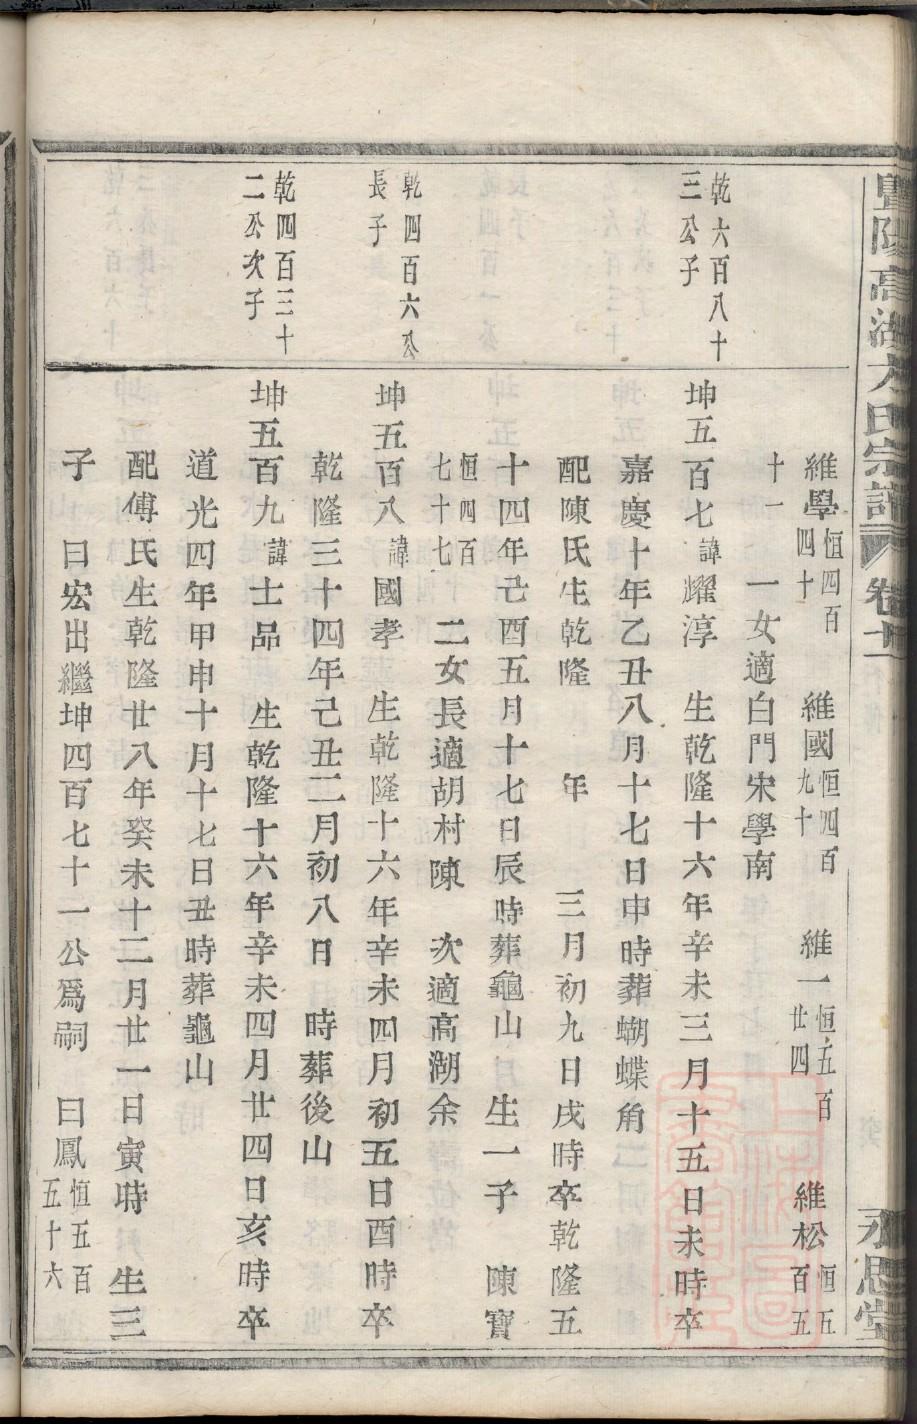 暨陽高湖方氏宗譜 卷十 永思堂
維學恒四百四十 維國恒四百九十 維一恒五百廿四 維松恒五百五
十一 一女適白門宋學南
乾六百八十
三公子
坤五百七諱耀淳 生乾隆十六年辛未三月十五日未時卒
嘉慶十年乙丑八月十七日申時葬蝴蝶角
配陳氏生乾隆 年 三月初九日戌時卒乾隆五
十四年己酉五月十七日辰時葬龜山 生一子 陳寶
恒四百七十七 二女長適胡村陳 次適高湖余
乾四百六公
長子
坤五百八諱國孝 生乾隆十六年辛未四月初五日酉時卒
乾隆三十四年己丑二月初八日 時葬後山
乾四百三十
二公次子
坤五百九諱士品 生乾隆十六年辛未四月廿四日亥時卒
道光四年甲申十月十七日丑時葬龜山
配傅氏生乾隆廿八年癸未十二月廿一日寅時 生三
子 曰宏出繼坤四百七十一公爲嗣 曰鳳恒五百五十六